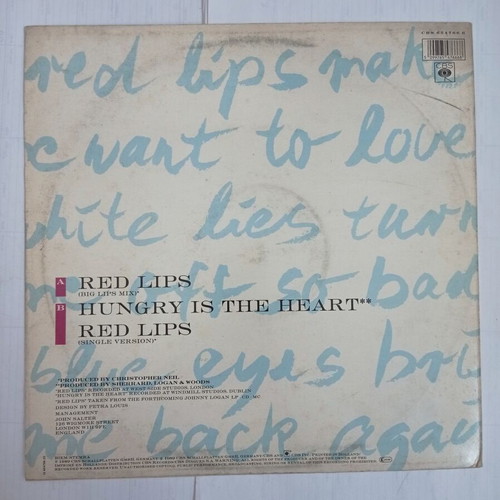 CBS
red lips make
want to love
white lies turn
me off so bad
blue eyes bri
me back again
A RED LIPS
(BIG LIPS MIX)*
B HUNGRY IS THE HEART**
RED LIPS
(SINGLE VERSION)*
*PRODUCED BY CHRISTOPHER NEIL
**PRODUCED BY SHERRARD, LOGAN & WOODS
"RED LIPS" RECORDED AT WEST SIDE STUDIOS, LONDON
"HUNGRY IS THE HEART" RECORDED AT WINDMILL STUDIOS, DUBLIN
"RED LIPS" TAKEN FROM THE FORTHCOMING JOHNNY LOGAN LP CD MC
DESIGN BY PETRA LOUIS
MANAGEMENT
JOHN SALTER
126 WIGMORE STREET
LONDON
ENGLAND